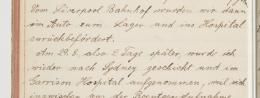 Vom Liverpool Bahnhof wurden wir dann
ein Auto zum Lager und ins Hospital
zurückbefördert.
Am 29.8. also 2 Tage später, wurde ich
wieder nach Sydney geschickt und im
Garrison Hospital aufgenommen, weil sich
inzwischen aus der Röntgenaufnahme